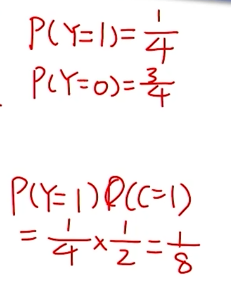 P(Y=1)=1/4
P(Y=0)=3/4
P(Y=1)P(C=1)
=1/4×1/2=1/8